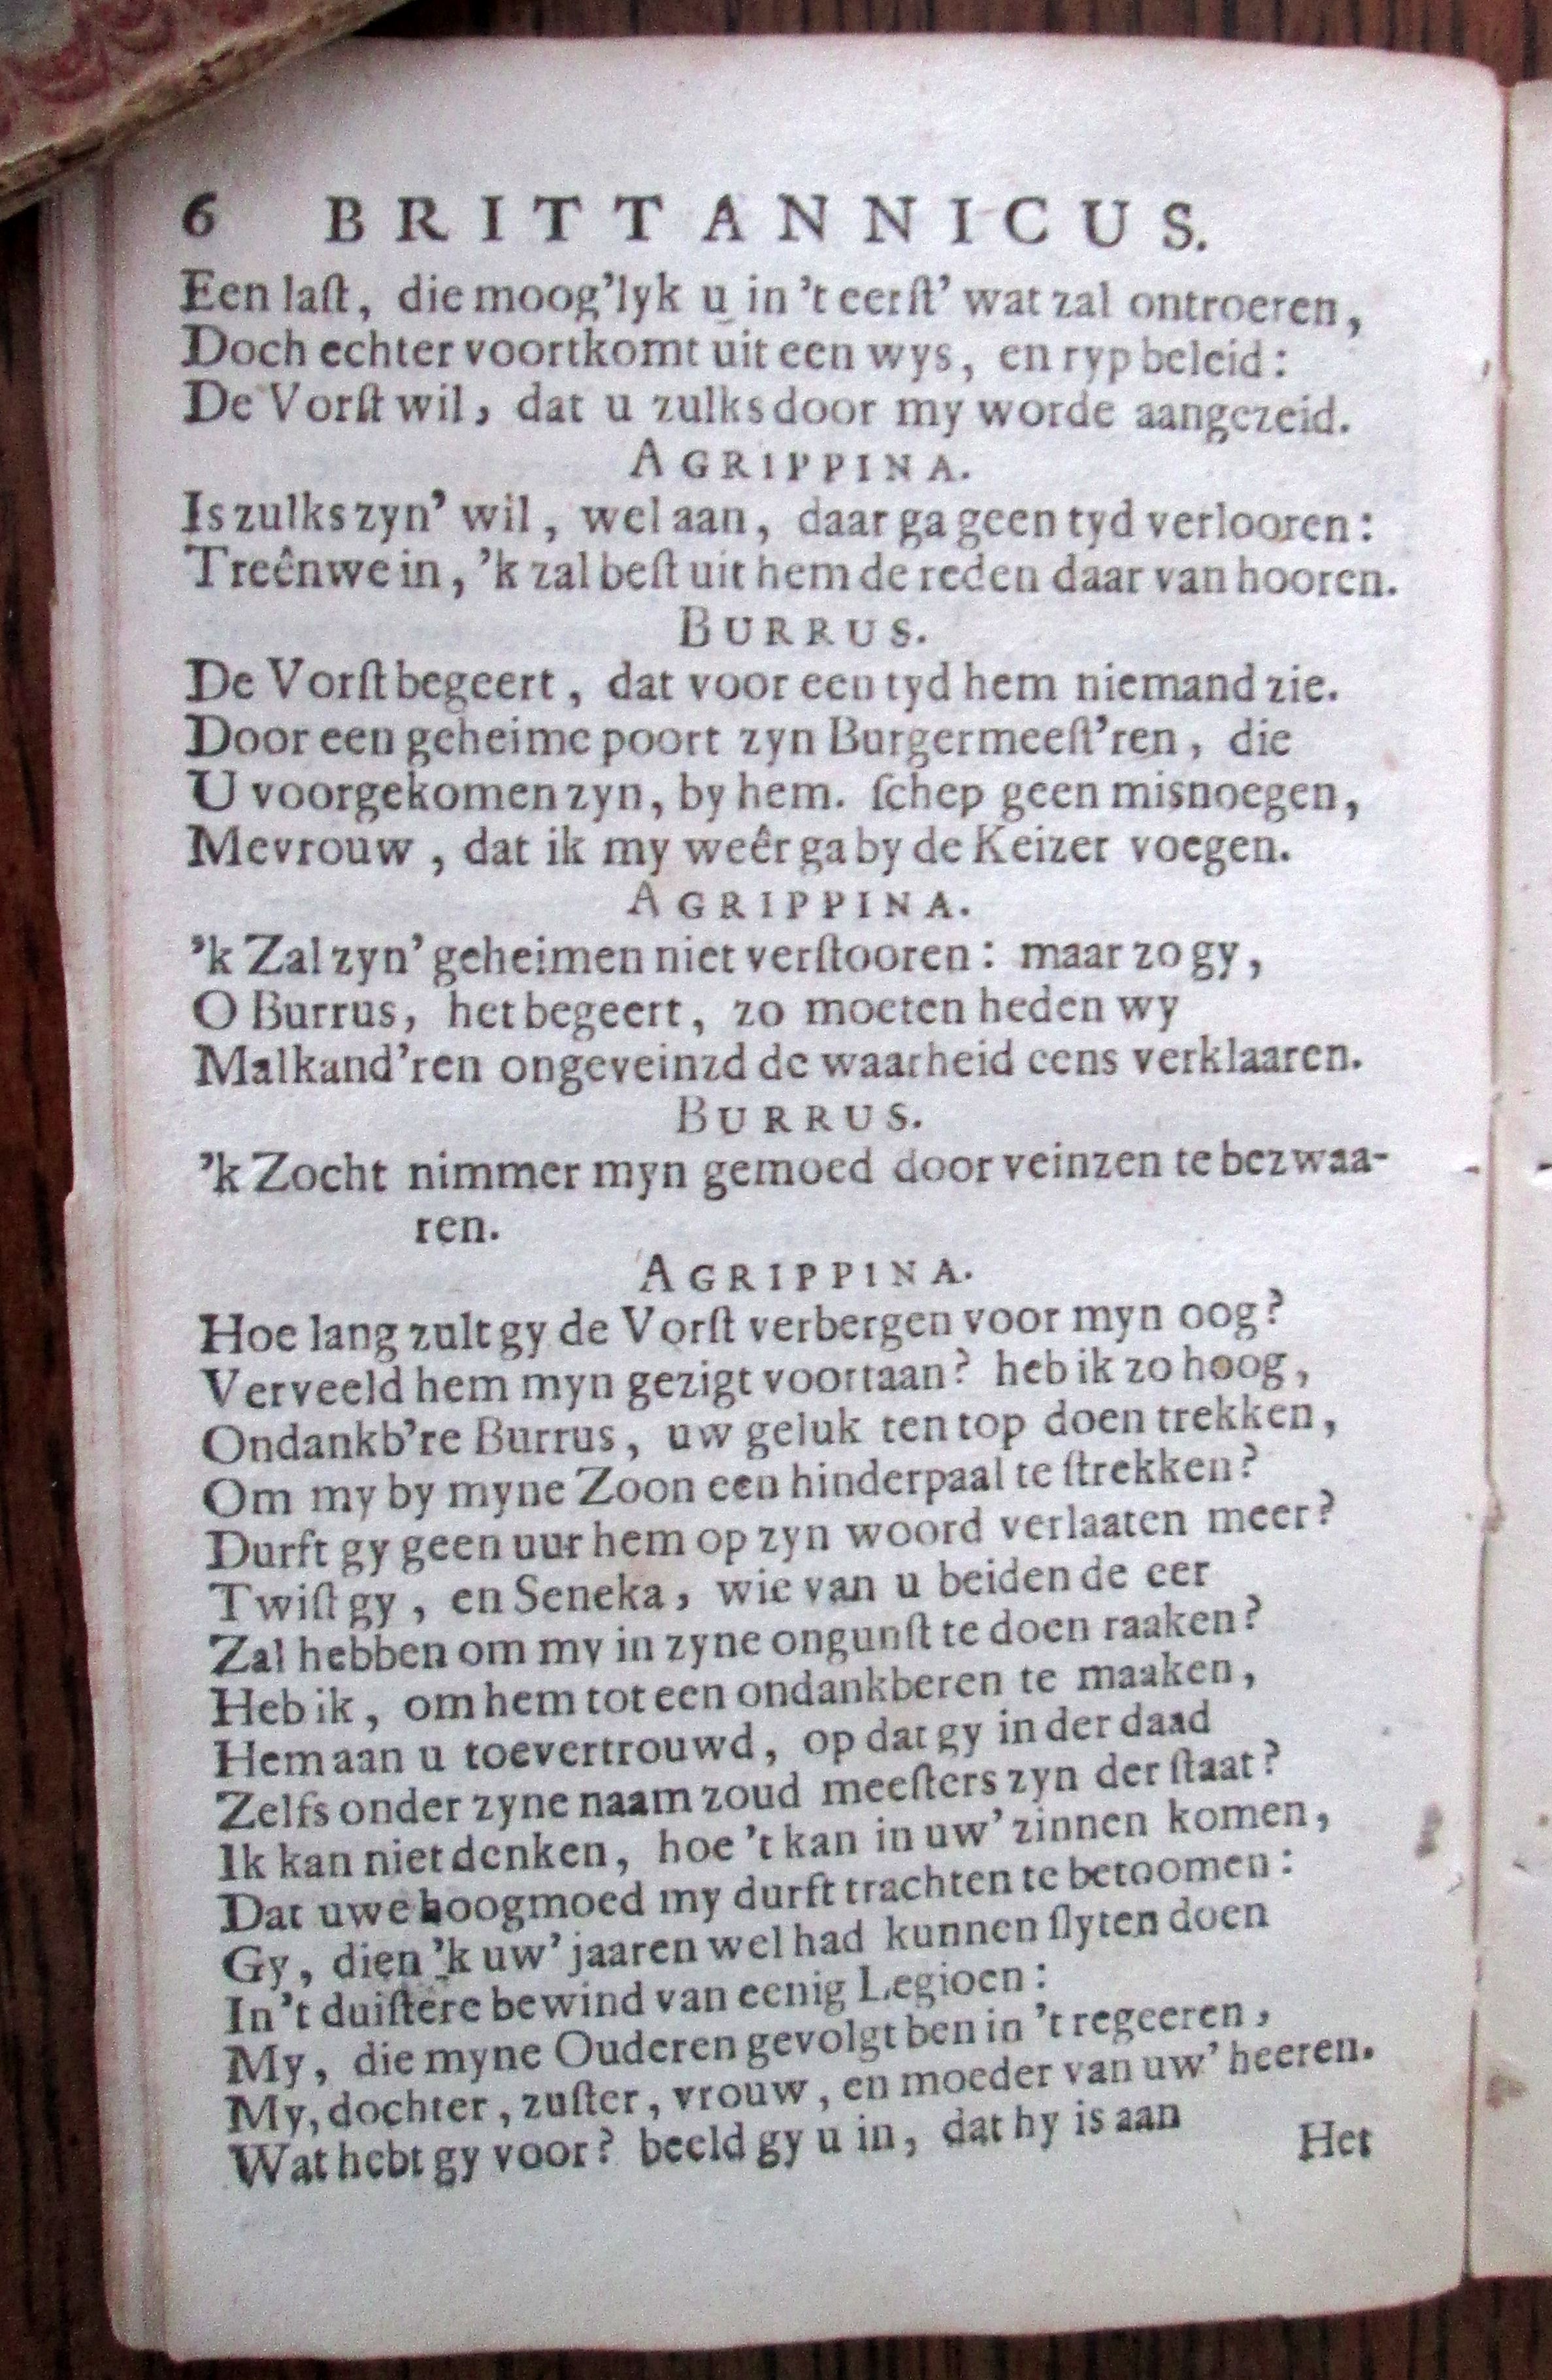 6 BRITTANNICUS.
Een laſt, die moog'lyk u in 't eerſt' wat zal ontroeren,
Doch echter voortkomt uit een wys, en ryp beleid:
De Vorſt wil, dat u zulks door my worde aangezeid.
AGRIPPINA.
Is zulks zyn' wil, wel aan, daar ga geen tyd verlooren:
Treên we in, 'k zal beſt uit hem de reden daar van hooren.
BURRUS.
De Vorſt begeert, dat voor een tyd hem niemand zie.
Door een geheime poort zyn Burgermeeſt'ren, die
U voorgekomen zyn, by hem. ſchep geen misnoegen,
Mevrouw, dat ik my weêr ga by de Keizer voegen.
AGRIPPINA.
'k Zal zyn' geheimen niet verſtooren: maar zo gy,
O Burrus, het begeert, zo moeten heden wy
Malkand'ren ongeveinzd de waarheid eens verklaaren.
BURRUS.
'k Zocht nimmer myn gemoed door veinzen te bezwaa-
ren.
AGRIPPINA.
Hoe lang zult gy de Vorſt verbergen voor myn oog?
Verveeld hem myn gezigt voortaan? heb ik zo hoog,
Ondankb're Burrus, uw geluk ten top doen trekken,
Om my by myne Zoon een hinderpaal te ſtrekken?
Durft gy geen uur hem op zyn woord verlaaten meer?
Twiſt gy, en Seneka, wie van u beiden de eer
Zal hebben om my in zyne ongunſt te doen raaken?
Heb ik, om hem tot een ondankberen te maaken,
Hem aan u toevertrouwd, op dat gy in der daad
Zelfs onder zyne naam zoud meeſters zyn der ſtaat?
Ik kan niet denken, hoe 't kan in uw' zinnen komen,
Dat uwe hoogmoed my durft trachten te betoomen:
Gy, dien 'k uw' jaaren wel had kunnen ſlyten doen
In 't duiſtere bewind van eenig Legioen:
My, die myne Ouderen gevolgt ben in 't regeeren,
My, dochter, zuſter, vrouw, en moeder van uw' heeren.
Wat hebt gy voor? beeld gy u in, dat hy is aan
Het